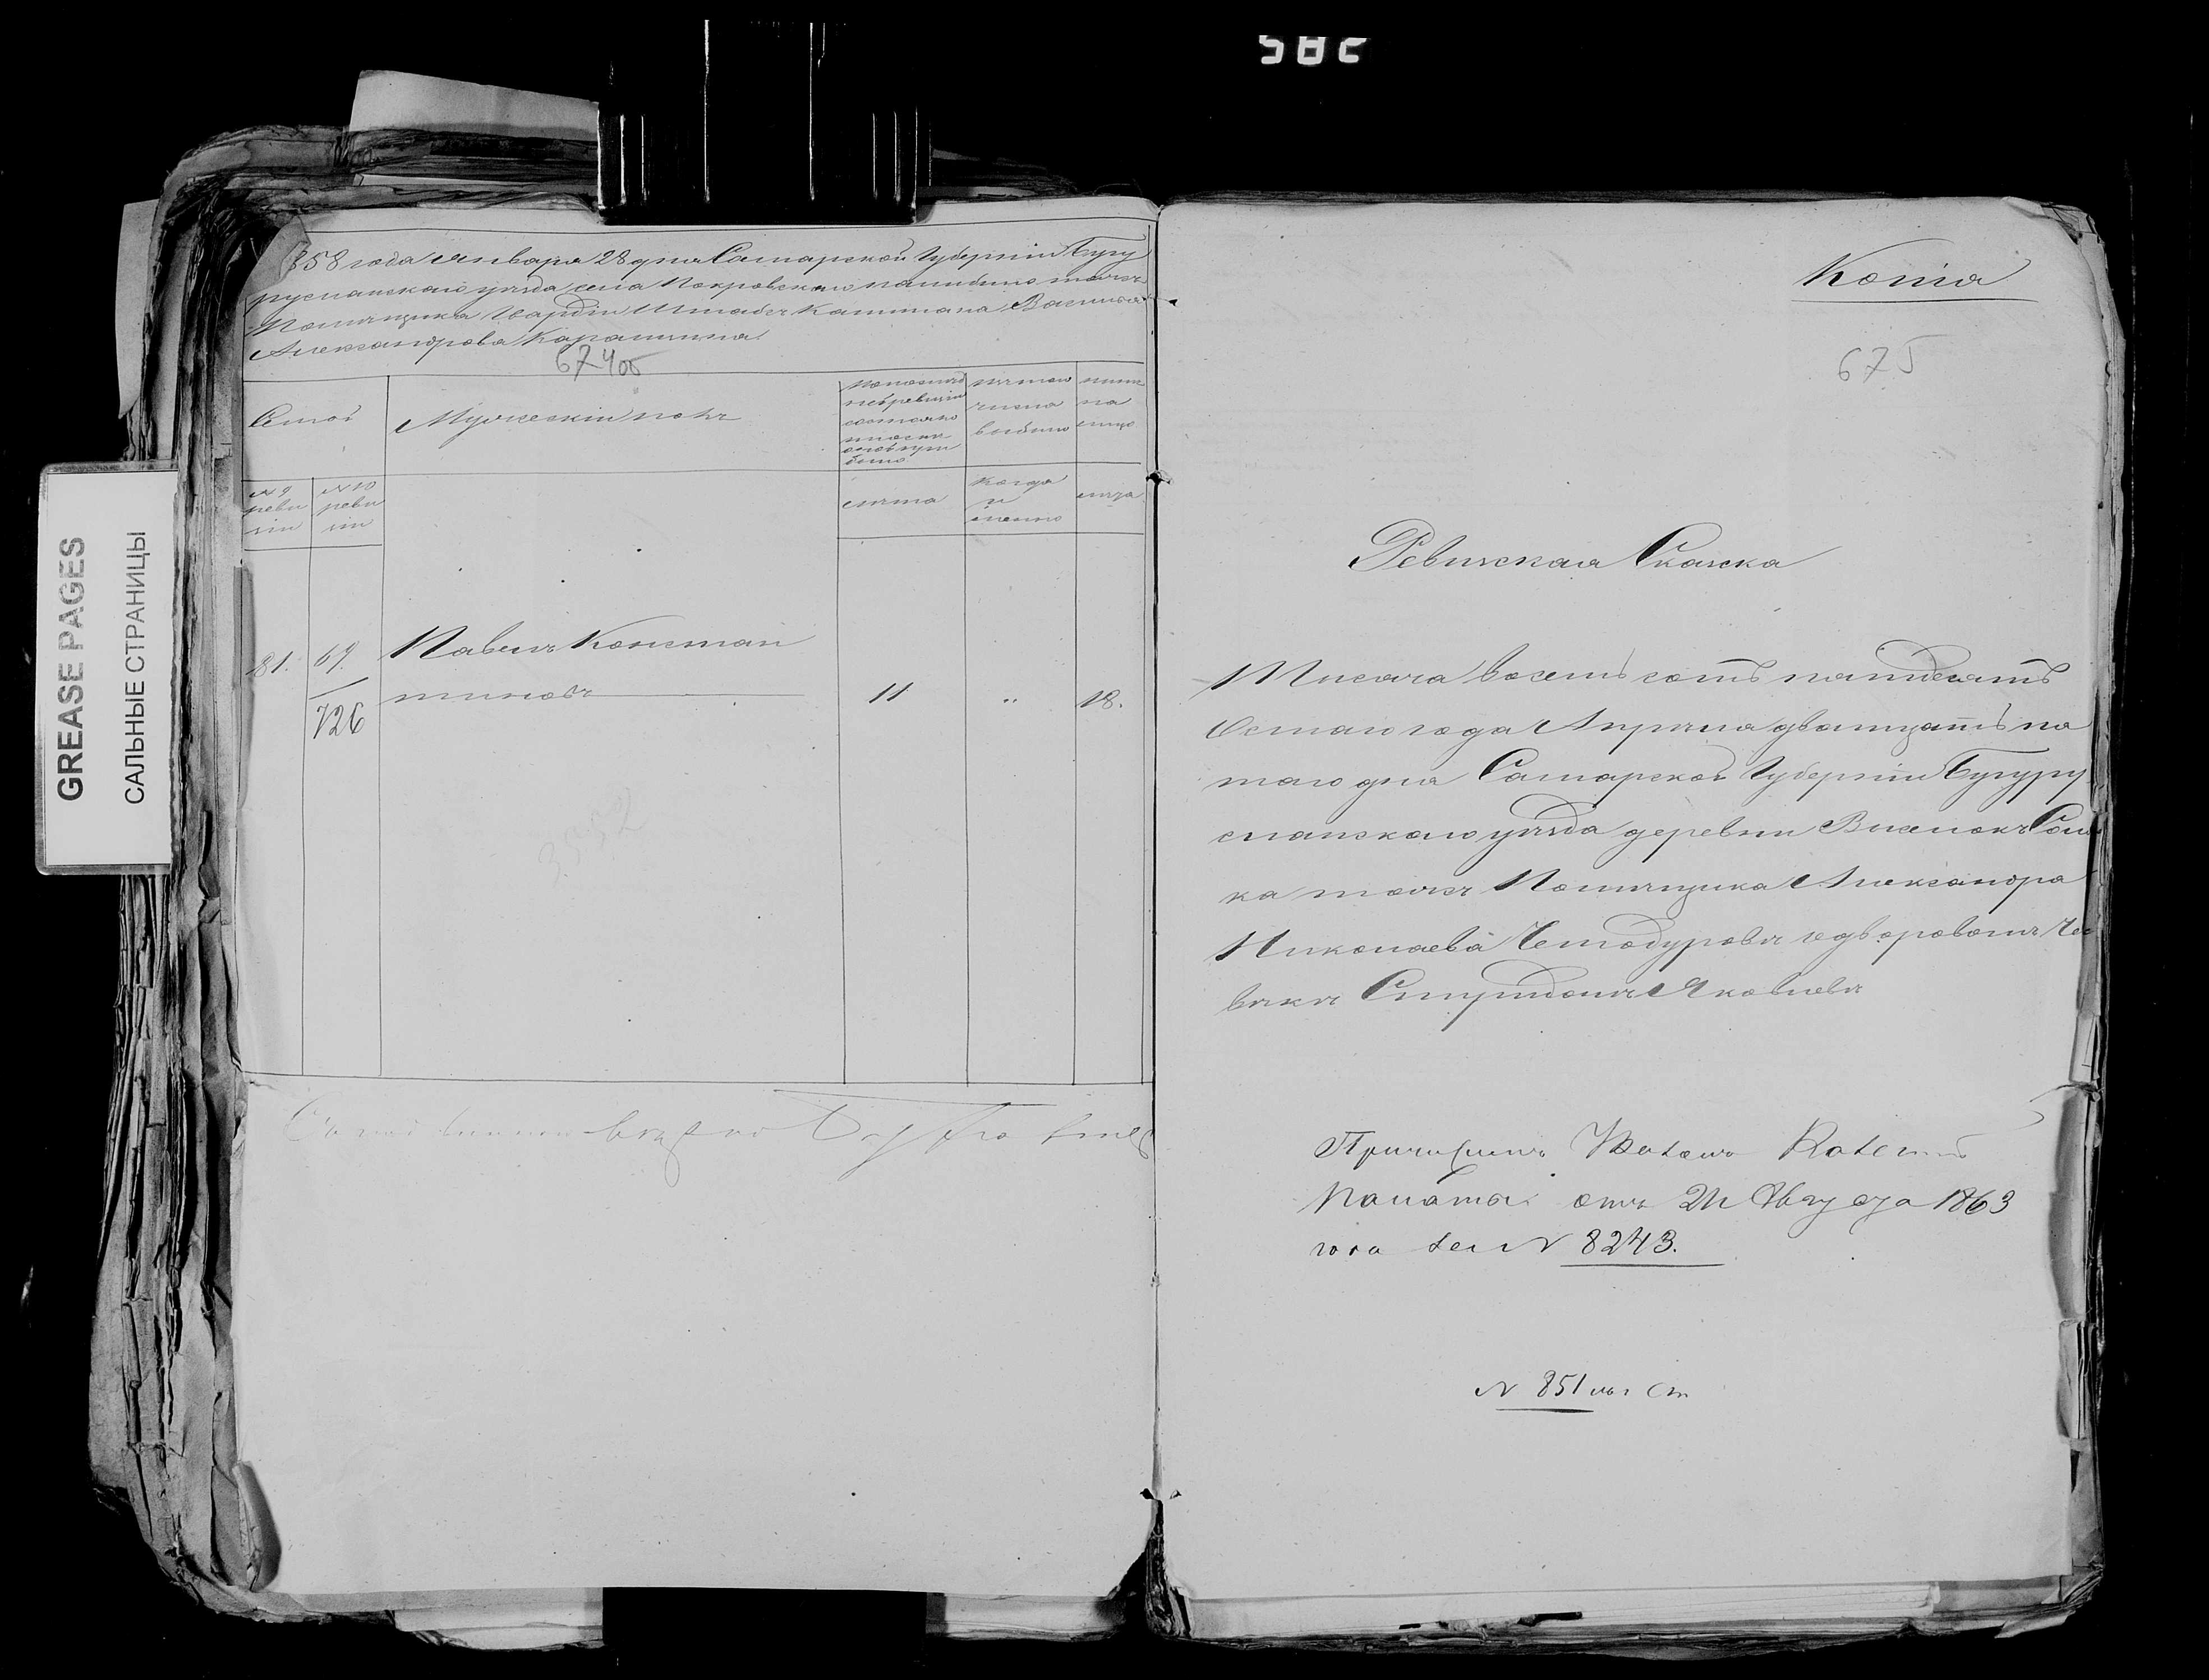 582
GREASE PAGES
САЛЬНЫЕ СТРАНИЦЫ
858 года Января 28 дня Самарской Губерніи Бугу
русланскаго уѣзда села Покровскаго тожъ
Помѣщика Гвардіи Штабсъ Капитана Василья
Александрова Карамзина
674об
Семьи
Мужескій полъ
по послѣд
ней ревизіи
состояло
изъ того
числа
выбыло
ныне
на
лицо
№ 9
реви
зіи
№ 10
реви
зіи
лѣта
когда
и
имено
лѣта
81. 69. Павелъ Констан
тиновъ 11 " 18.
726
Копія
675
Ревизская Сказка
Тысяча восемь сотъ пятьдесятъ
осьмаго года Апрѣля дватцать пя
таго дня Самарской Губерніи Бугуру
сланскаго уѣзда деревни
ка тожъ Помѣщика Александра
Николаева Чемодурова о дворовомъ Чело
вѣкѣ Яковлевѣ
Причисленъ Указомъ Казенной
Палаты отъ 21 Августа 1863
года за № 8243.
№ 851